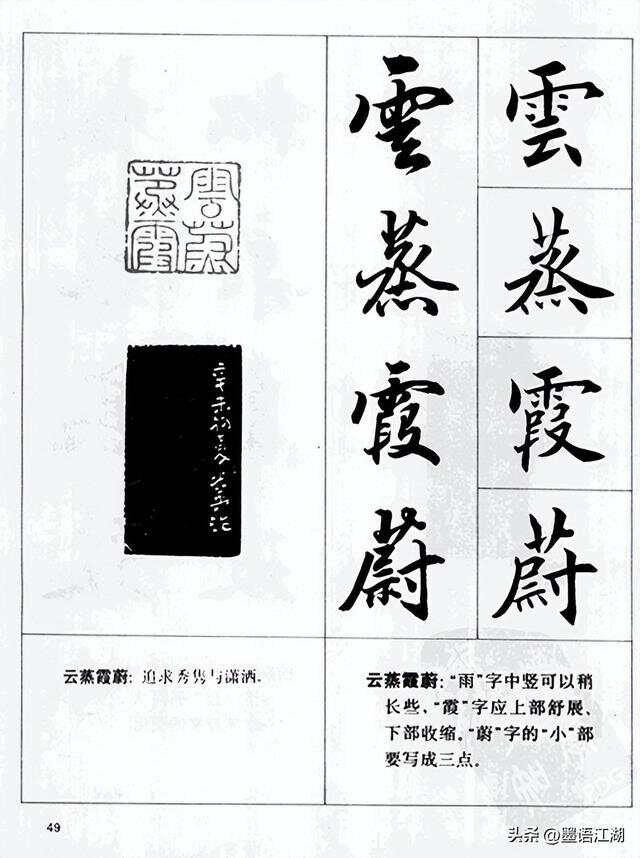 雲蒸霞蔚
雲蒸霞蔚
雲蒸霞蔚
辛未初夏
云蒸霞蔚：“雨”字中竖可以稍
长些，“霞”字应上部舒展、
下部收缩。“蔚”字的“小”部
要写成三点。
云蒸霞蔚：追求秀隽与潇洒.
49
头条@墨语江湖